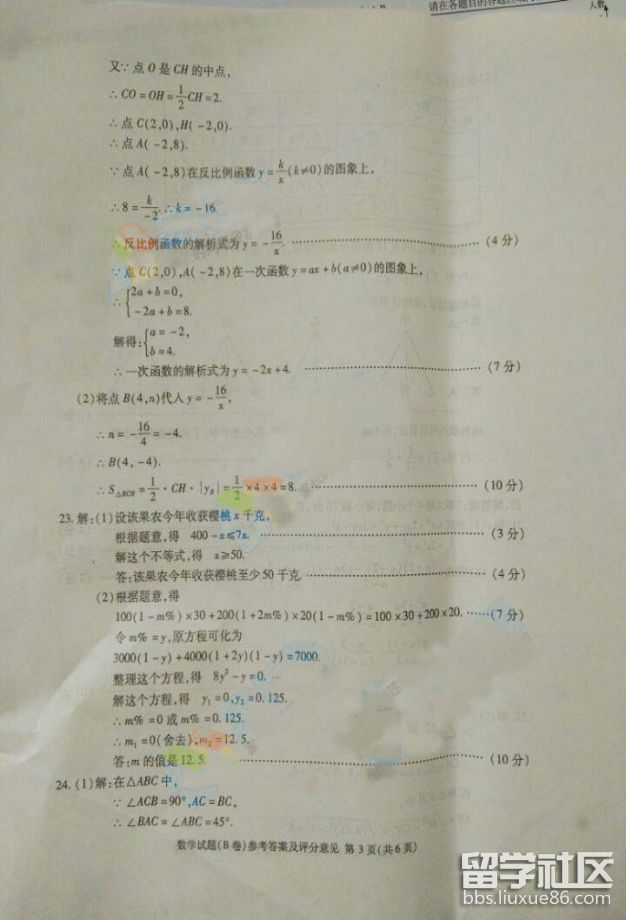 请在各题目的答题区域
人数
又∵点O是CH的中点,
∴CO=OH=\frac{1}{2}CH=2.
∴点C(2,0),H(-2,0).
∴点A(-2,8).
∵点A(-2,8)在反比例函数y=\frac{k}{x}(k≠0)的图象上,
∴8=\frac{k}{-2}.∴k=-16.
∴反比例函数的解析式为y=-\frac{16}{x}. (4分)
∵点C(2,0),A(-2,8)在一次函数y=ax+b(a≠0)的图象上,
∴{2a+b=0,
-2a+b=8.
解得:{a=-2,
b=4.
∴一次函数的解析式为y=-2x+4. (7分)
(2)将点B(4,n)代入y=-\frac{16}{x},
∴n=-\frac{16}{4}=-4.
∴B(4,-4).
∴S△BCH=\frac{1}{2}·CH·|y_B|=\frac{1}{2}×4×4=8. (10分)
23.解:(1)设该果农今年收获樱桃x千克,
根据题意,得 400-x≤7x. (3分)
解这个不等式,得 x≥50.
答:该果农今年收获樱桃至少50千克. (4分)
(2)根据题意,得
100(1-m%)×30+200(1+2m%)×20(1-m%)=100×30+200×20. (7分)
令m%=y,原方程可化为
3000(1-y)+4000(1+2y)(1-y)=7000.
整理这个方程,得 8y²-y=0.
解这个方程,得 y₁=0,y₂=0.125.
∴m%=0或m%=0.125.
∴m₁=0(舍去),m₂=12.5.
答:m的值是12.5. (10分)
24.(1)解:在△ABC中,
∵∠ACB=90°,AC=BC,
∴∠BAC=∠ABC=45°.
数学试题(B卷)参考答案及评分意见 第3页(共6页)
留学社区
bbs.liuxue86.com